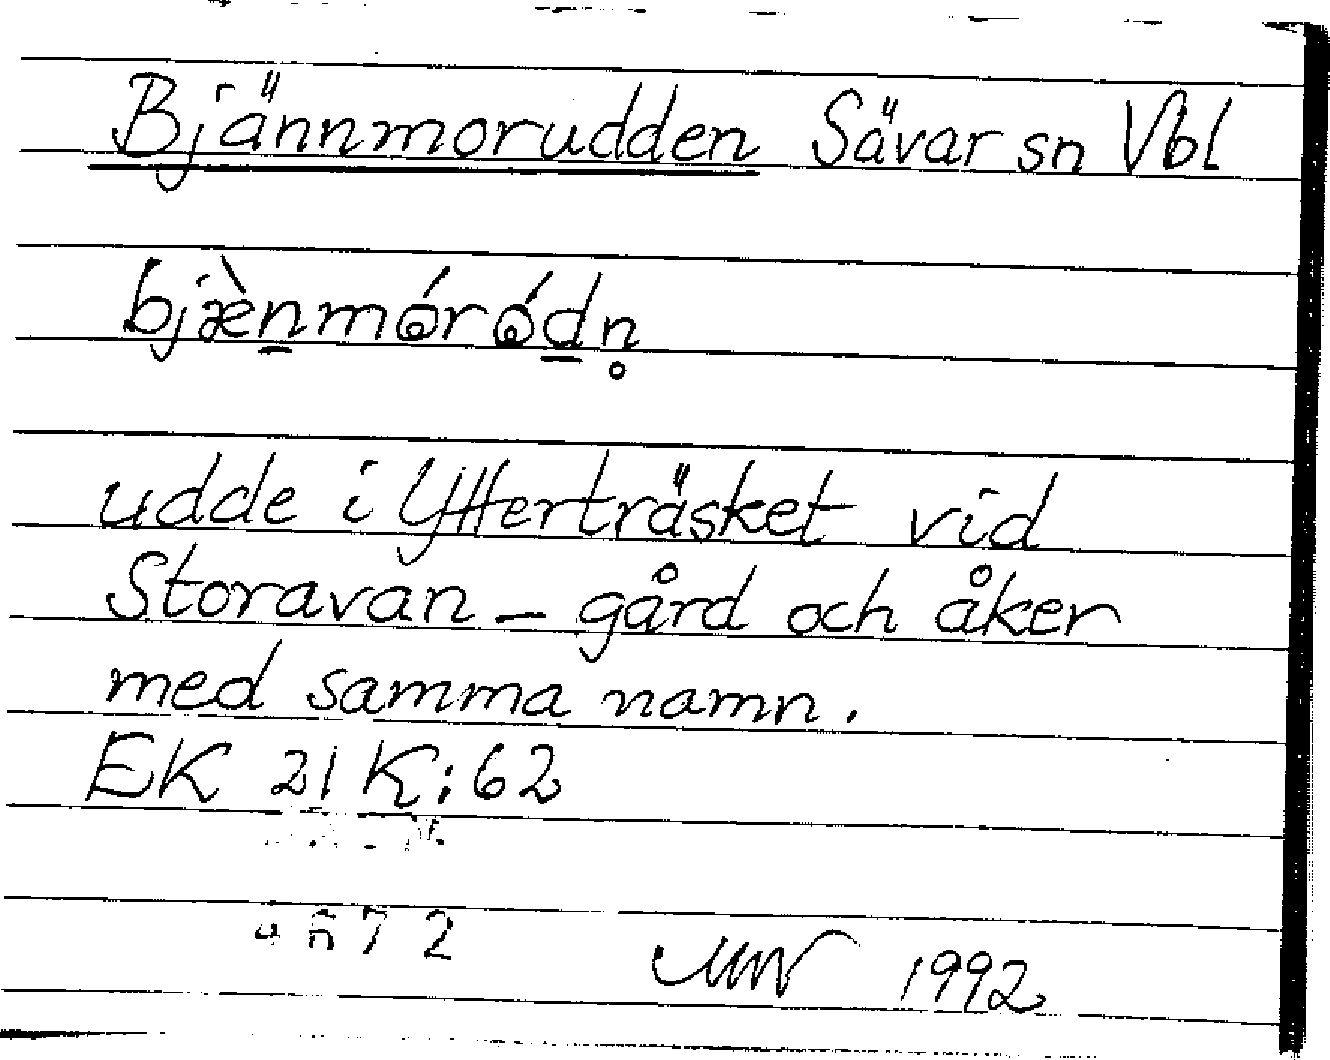 Bjännmorudden Sävar sn Vbl
bjæ̀n̲mǿrǿd̲n̥
udde i Ytterträsket vid
Storavan – gård och åker
med samma namn.
EK 21 K:62
1992